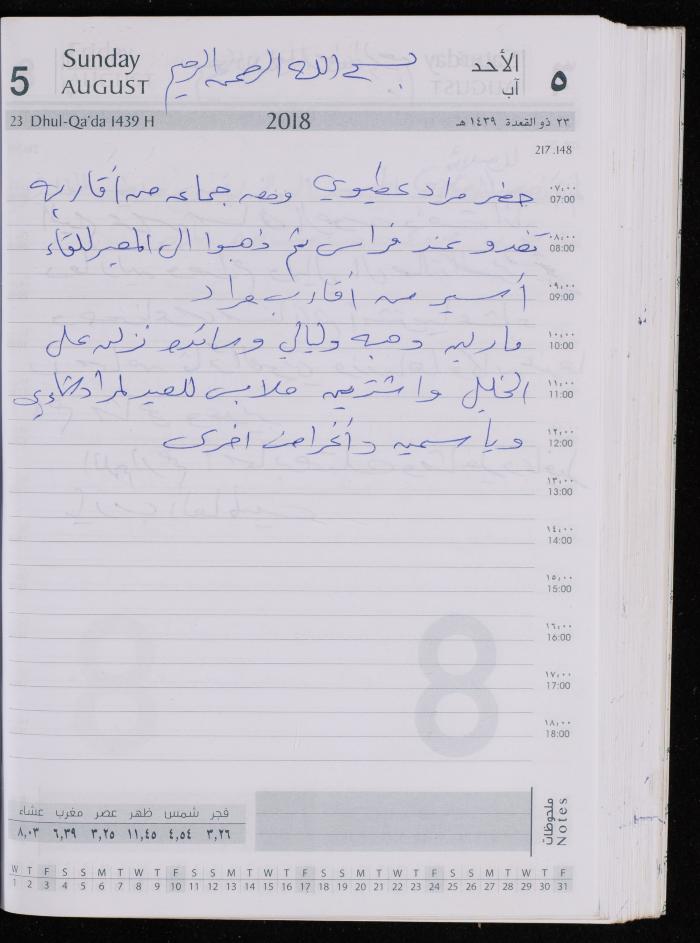 5
Sunday
AUGUST
بسم الله الرحمن الرحيم
الأحد
آب
٥
23 Dhul-Qa'da 1439 H
2018
٢٣ ذو القعدة ١٤٣٩ هـ
217.148
٠٧,٠٠
07:00
حضر مراد عطيوي ومعه جماعه من أقاربه
٠٨,٠٠
08:00
تغدو عند فراس ثم ذهبوا الى المصر للقاء
٠٩,٠٠
09:00
أسير من أقارب مراد
١٠,٠٠
10:00
مارلين وهبه وليالي وسائده نزلن على
١١,٠٠
11:00
الخليل واشترين ملابس للعيد لمراد
١٢,٠٠
12:00
وياسمين وأغراض اخرى
١٣,٠٠
13:00
١٤,٠٠
14:00
١٥,٠٠
15:00
١٦,٠٠
16:00
١٧,٠٠
17:00
١٨,٠٠
18:00
8
فجر شمس ظهر عصر مغرب عشاء
٣,٢٦ ٤,٥٤ ١١,٤٥ ٣,٢٥ ٦,٣٩ ٨,٠٣
ملحوظات
Notes
W T F S S M T W T F S S M T W T F S S M T W T F S S M T W T F
1 2 3 4 5 6 7 8 9 10 11 12 13 14 15 16 17 18 19 20 21 22 23 24 25 26 27 28 29 30 31